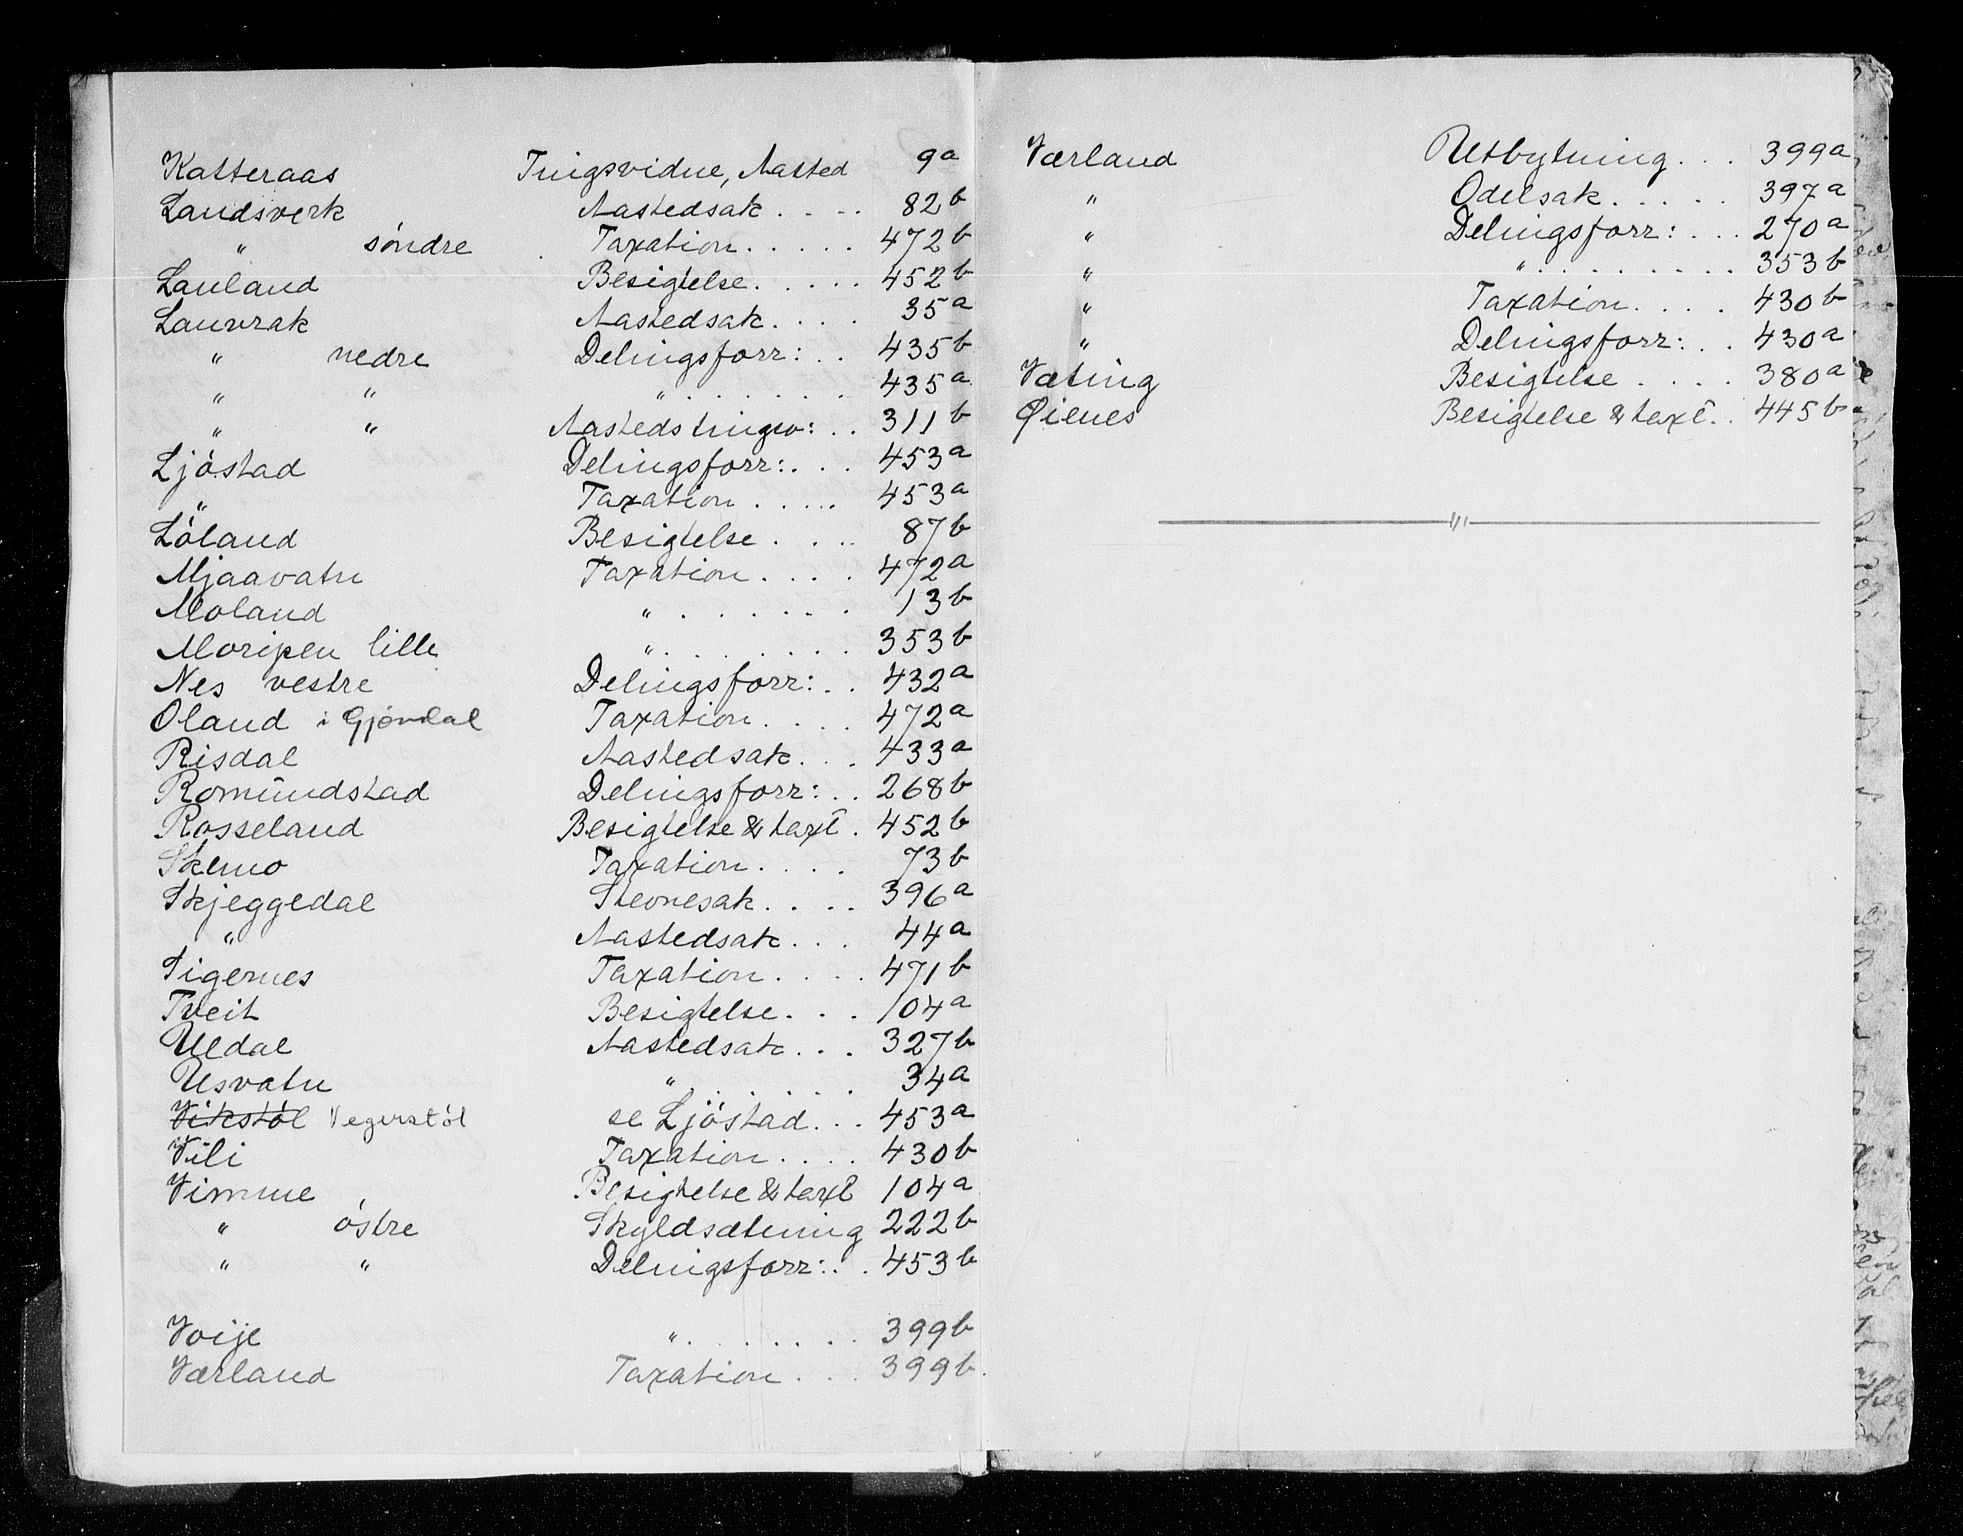 Katteraas Tingsvidne, Aasted 9a
Landsverk Aastedsak .... 82b
" söndre Taxation ..... 472b
Lauland Besigtelse ..... 452b
Lauvrak Aastedsak .... 35a
" nedre Delingsforr: .. 435b
" " " ....... 435a
" " Aastedstingsv: .. 311b
Ljöstad Delingsforr: ... 453a
" Taxation ..... 453a
Löland Besigtelse .... 87b
Mjaavatn Taxation .... 472a
Moland " ...... 13b
Moripen lille " ....... 353b
Nes vestre Delingsforr: .. 432a
Oland i Gjövdal Taxation .... 472a
Risdal Aastedsak ... 433a
Romundstad Delingsforr: .. 268b
Rosseland Besigtelse & taxt . 452b
Skemo Taxation .... 73b
Skjeggedal Stevnesak .... 396a
" Aastedsak ... 44a
Sigernes Taxation .... 471b
Tveit Besigtelse ... 104a
Uldal Aastedsak ... 327b
Usvatn " ...... 34a
Vikstöl Vegerstöl se Ljöstad ... 453a
Vili Taxation .... 430b
Vimme Besigtelse & taxt 104a
" östre Skyldsætning 222b
" " Delingsforr: .. 453b
Voije " ...... 399b
Værland Taxation ... 399b
Værland Utbytning ... 399a
" Odelsak ..... 397a
" Delingsforr: ... 270a
" " ......... 353b
" Taxation .... 430b
" Delingsforr: .. 430a
Væting Besigtelse .... 380a
Øienes Besigtelse & taxt .. 445b